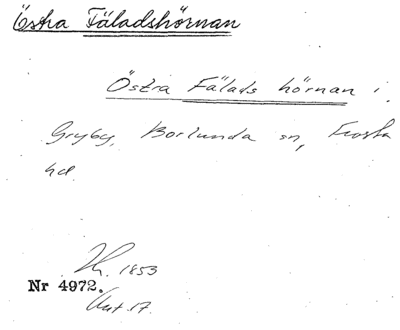 Östra Fäladshörnan
Östra Fälads hörnan i
Gryby, Borlunda sn, Frosta
hd
1853
Nr 4972.
17.